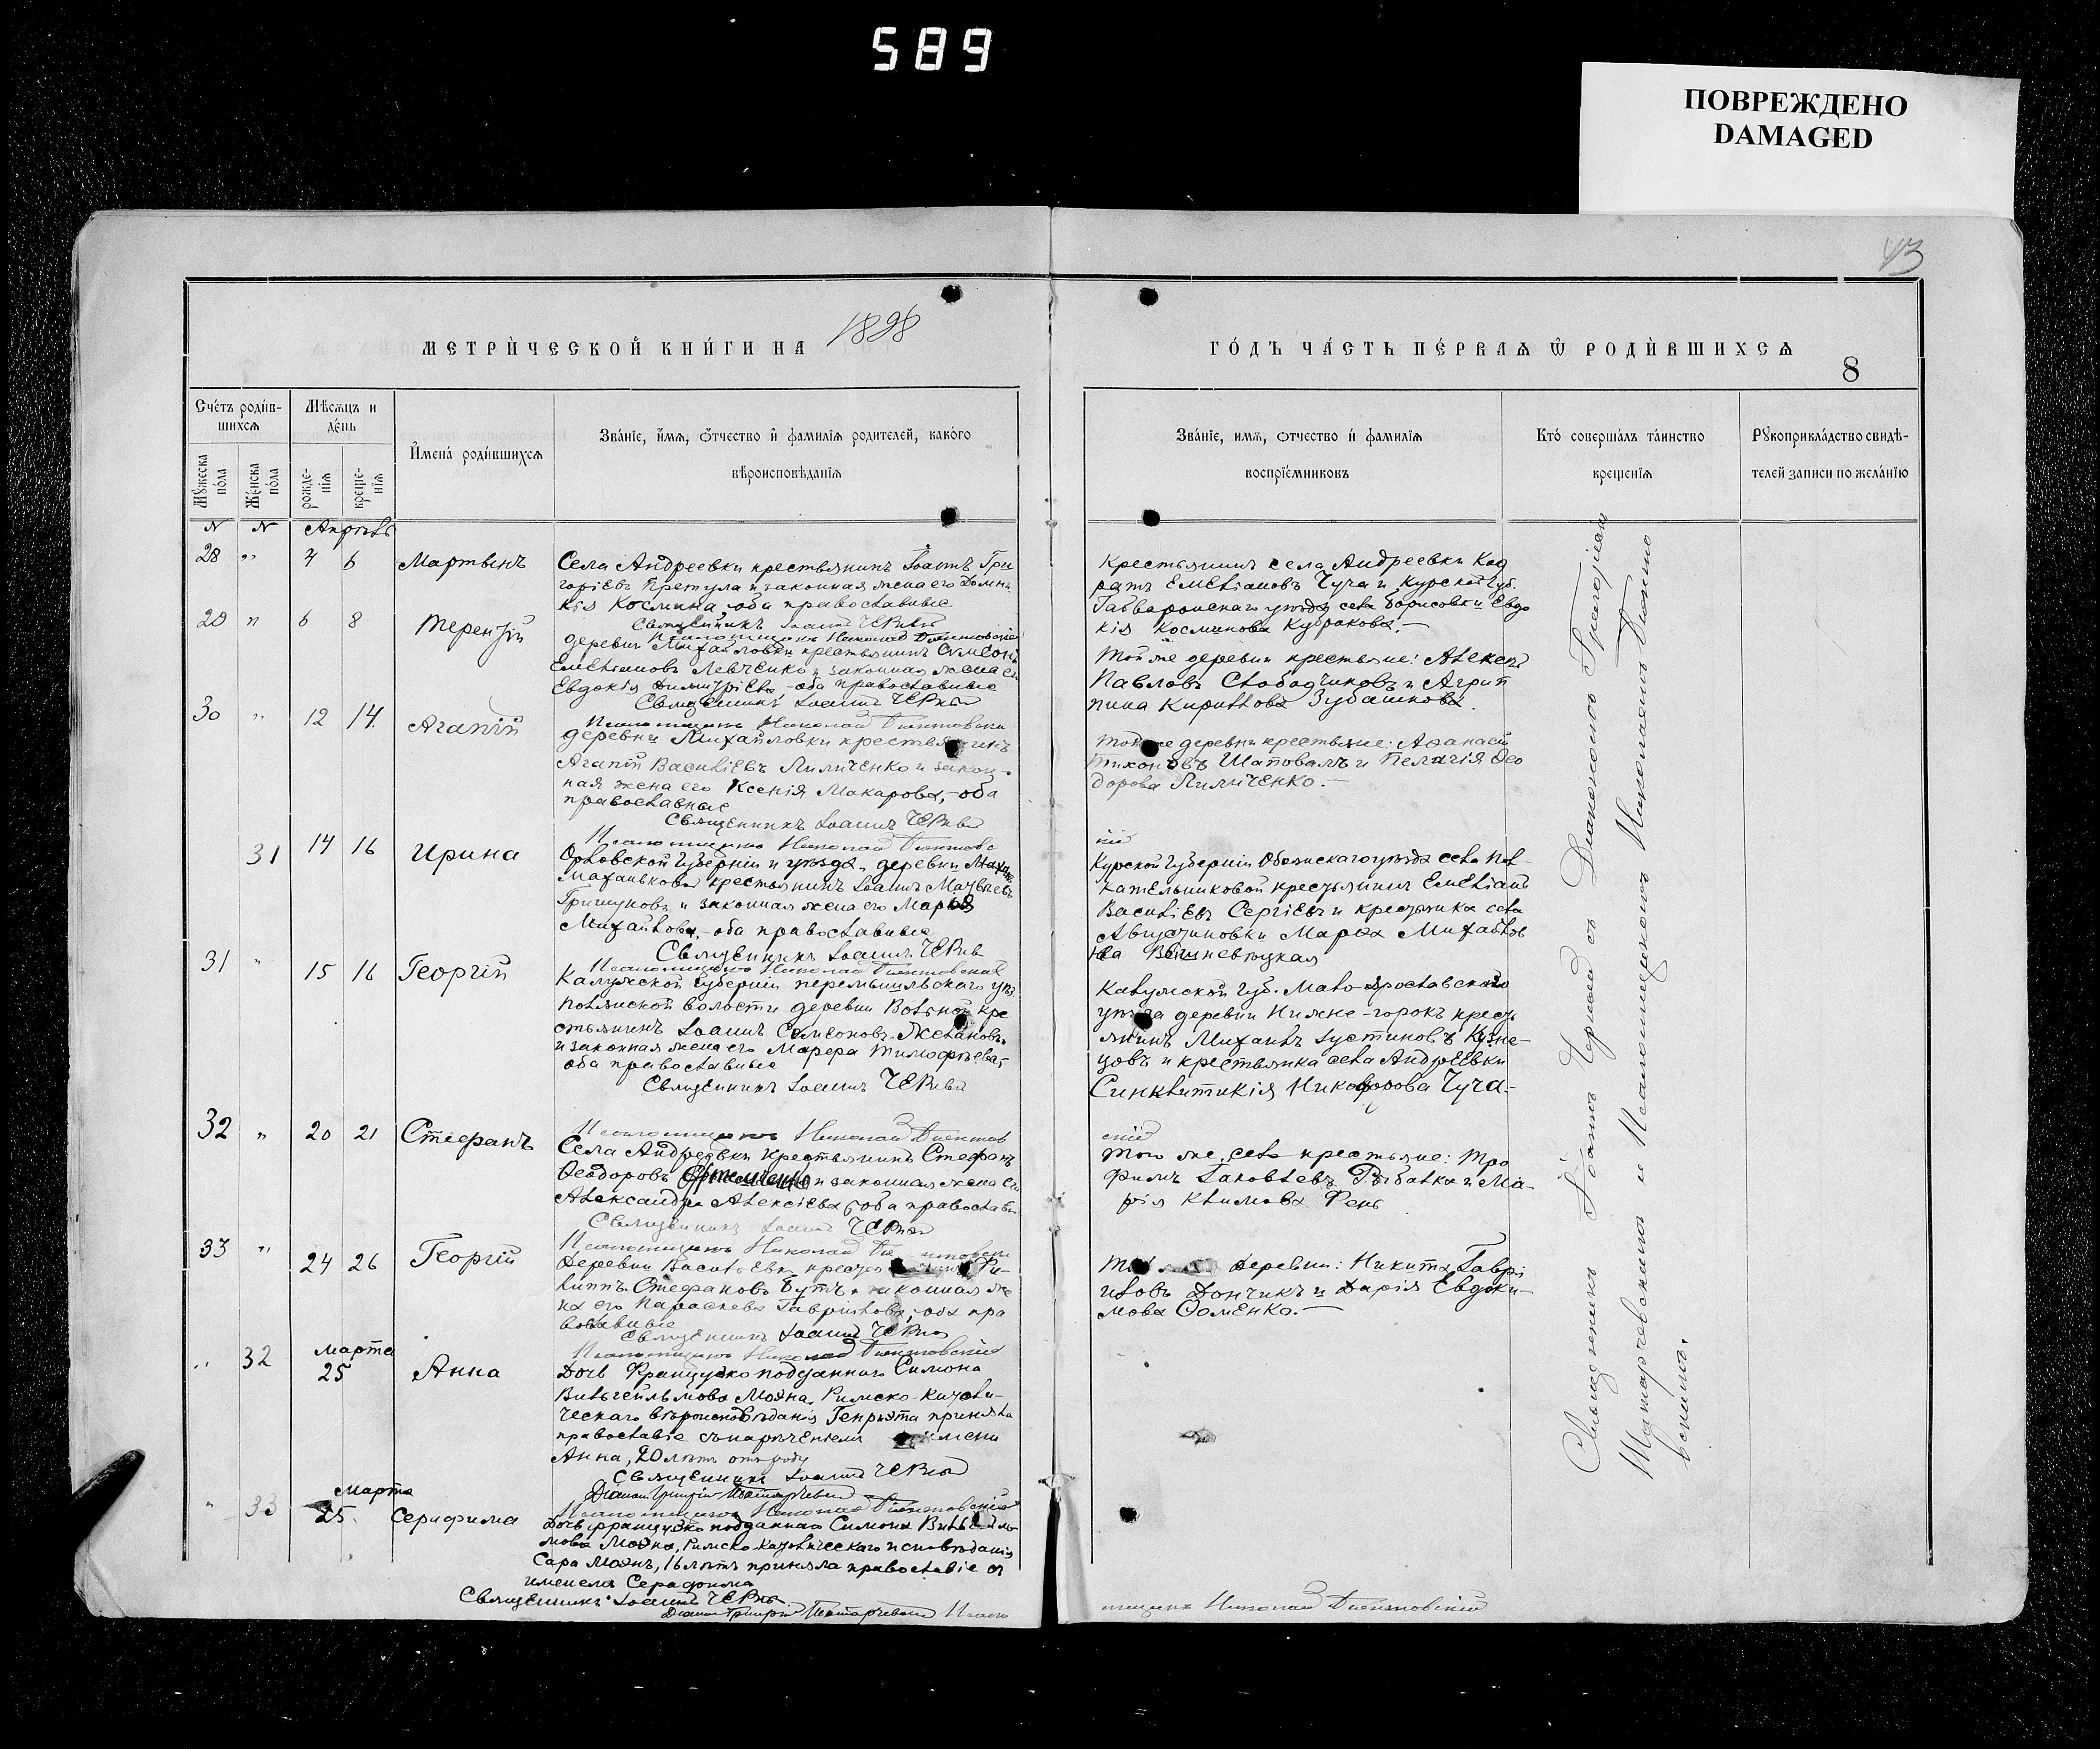 589
ПОВРЕЖДЕНО
DAMAGED
43
МЕТРИЧЕСКОЙ КНИГИ НА 1898
ГОДЪ ЧАСТЬ ПЕРВАЯ Ѡ РОДИВШИХСЯ
8
Счетъ родив-
шихся
Мужеска пола
Женска пола
Мѣсяцъ и
день
рожде-
нія
креще-
нія
Имена родившихся
Званіе, имя, отчество и фамилія родителей, какого
вѣроисповѣданія
Званіе, имя, отчество и фамилія
воспріемниковъ
Кто совершалъ таинство
крещенія
Рукоприкладство свидѣ-
телей записи по желанію
N N Апрѣль
28 " 4 6 Мартынъ
Села Андреевки крестьянинъ Іоаннъ Гри
горіевъ Претула и законная жена его Домни
кія Космина, оба православные
Священникъ Іоаннъ Черный
Крестьянинъ села Андреевки Код
ратъ Емеліановъ Чуча и Курской губ.
уѣзда села Борисовки Евдо
кія Косминова Кубракова.—
29 " 6 8 Терентій
Псаломщикъ Николай
деревни Михайловки крестьянинъ Сѵмеонъ
Емеліановъ Левченко и законная жена его
Евдокія Димитріева,-оба православные
Священникъ Іоаннъ Черный
Той же деревни крестьяне: Алексѣй
Павловъ Слободчиковъ и Агрип
пина Кириллова Зубашкова.
30 " 12 14. Агапій
Псаломщикъ Николай
деревни Михайловки крестьянинъ
Агапій Василіевъ Пиличенко и закон-
ная жена его Ксенія Макарова,-оба
православные
Священникъ Іоаннъ Черный
Той же деревни крестьяне: Аѳанасій
Тихоновъ Шаповалъ и Пелагія Ѳео
дорова Пиличенко.—
31 14 16 Ирина
Псаломщикъ Николай
Орловской губерніи и уѣзда, деревни
крестьянинъ Іоаннъ Матвѣевъ
Гришуновъ и законная жена его Марѳа
Михайлова,-оба православные
Священникъ Іоаннъ Черный
Курской губерніи Обоянскаго уѣзда села
крестьянинъ Емеліанъ
Василіевъ Сергіевъ и крестьянка села
Августиновки Марѳа Михайлов
на Вишневецкая
31 " 15 16 Георгій
Псаломщикъ Николай
Калужской губерніи Перемышльскаго уѣз.
волости деревни Вольной кре
стьянинъ Іоаннъ Сѵмеоновъ
и законная жена его Марѳа Тимофѣева,-
оба православные
Священникъ Іоаннъ Черный
Калужской губ. Мало-Ярославскаго
уѣзда деревни Нижне-горокъ кресть
янинъ Михаилъ Іустиновъ Кузне-
цовъ и крестьянка села Андреевки
Синклитикія Никифорова Чуча.-
32 " 20 21 Стефанъ
Псаломщикъ Николай
Села Андреевки крестьянинъ Стефанъ
Ѳеодоровъ Артеменко и законная жена его
Александра Алексіева, оба православн
Священникъ Іоаннъ Черный
Того же села крестьяне: Тро
фимъ Іаковлевъ Рыбалка и Ма-
рія Климова Фень
33 " 24 26 Георгій
Псаломщикъ Николай
Деревни Васильевки Фи-
липпъ Стефановъ Бутъ и законная же
на его Параскева Гавріилова,-оба пра
вославные
Священникъ Іоаннъ Черный
деревни: Никита Гаврі
иловъ Дончикъ и Дарія Евдоки-
мова Фоменко.—
" 32 Марта 25 Анна
Псаломщикъ Николай
Дочь Французко подданнаго Симона
Вильгейльмова Моэна, Римско-Католи-
ческаго вѣроисповѣданія Генріэта приняла
православіе съ нареченіемъ имени
Анна, 20 лѣтъ отъ роду
Священникъ Іоаннъ Черный
Діаконъ Григорій
" 33 Марта 25. Серафима
Псаломщикъ Николай
Дочь французко подданнаго Симона Вильгейль-
мова Моэна, Римско-Католическаго исповѣданія
Сара Моэнъ, 16 лѣтъ приняла православіе съ
именемъ Серафима
Священникъ Іоаннъ Черный
Діаконъ Григорій Псало
мщикъ Николай
Священникъ Іоаннъ Черный съ Діакономъ Григоріемъ
и Псаломщикомъ Николаемъ